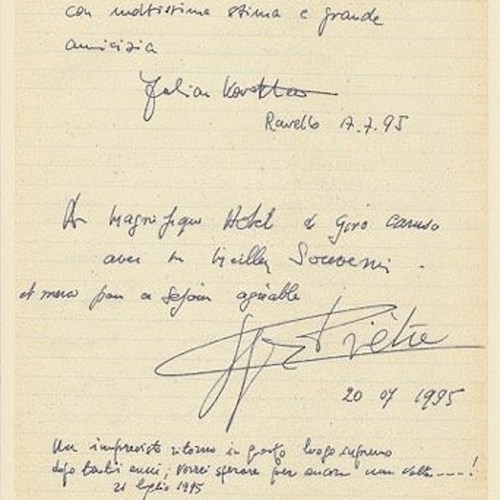 con moltissima stima e grande
amicizia
Julian
Ravello 17.7.95
Magnifique Hôtel de Gino Caruso
avec un meilleur Souvenir.
et merci pour ce séjour agréable
20 07 1995
Un imprevisto ritorno in questo luogo
dopo tanti anni; vorrei sperare per ancora una volta ----!
21 luglio 1995